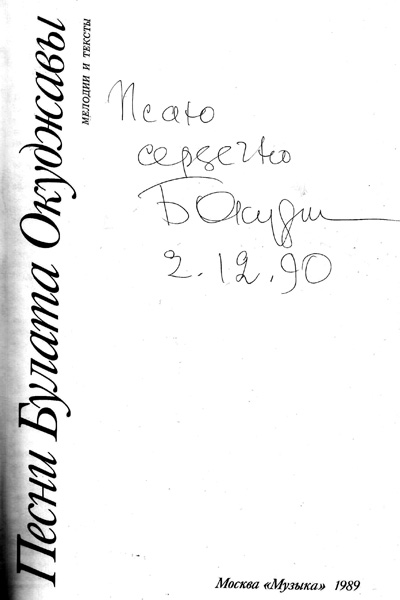 Песни Булата Окуджавы
МЕЛОДИИ И ТЕКСТЫ
сердечно
Б Окудж
2.12.90
Москва «Музыка» 1989